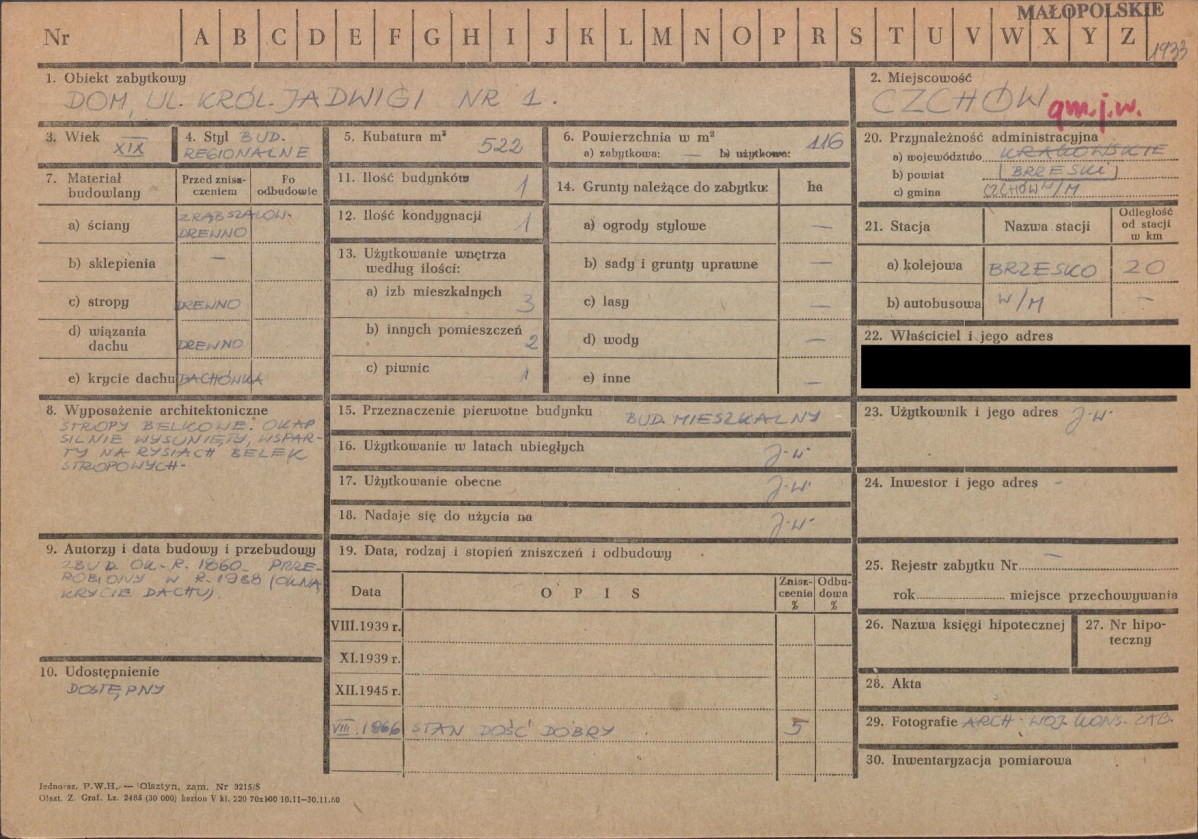 MAŁOPOLSKIE
Nr A B C D E F G H I J K L M N O P R S T U V W X Y Z
1933
1. Obiekt zabytkowy
DOM, UL. KRÓL. JADWIGI NR 1.
2. Miejscowość
CZCHÓW
gm.j.w.
3. Wiek XIX
4. Styl BUD. REGIONALNE
5. Kubatura m³ 522
6. Powierzchnia w m²
a) zabytkowa: — b) użytkowa: 116
7. Materiał budowlany
Przed zniszczeniem
Po odbudowie
a) ściany ZRĄB SZALOW. DREWNO
b) sklepienia —
c) stropy DREWNO
d) wiązania dachu DREWNO
e) krycie dachu DACHÓWKA
8. Wyposażenie architektoniczne
STROPY BELKOWE. OKAP
SILNIE WYSUNIĘTY, WSPAR-
TY NA RYSIACH BELEK
STROPOWYCH.
9. Autorzy i data budowy i przebudowy
ZBUD. OK. R. 1860. PRZE-
ROBIONY W R. 1938 (OKNA,
KRYCIE DACHU).
10. Udostępnienie
DOSTĘPNY
11. Ilość budynków 1
12. Ilość kondygnacji 1
13. Użytkowanie wnętrza
według ilości:
a) izb mieszkalnych 3
b) innych pomieszczeń 2
c) piwnic 1
14. Grunty należące do zabytku: ha
a) ogrody stylowe —
b) sady i grunty uprawne —
c) lasy —
d) wody —
e) inne —
15. Przeznaczenie pierwotne budynku BUD. MIESZKALNY
16. Użytkowanie w latach ubiegłych J.W.
17. Użytkowanie obecne J.W.
18. Nadaje się do użycia na J.W.
19. Data, rodzaj i stopień zniszczeń i odbudowy
Data
O P I S
Zniszczenia %
Odbudowa %
VIII.1939 r.
XI.1939 r.
XII.1945 r.
VIII.1966 STAN DOŚĆ DOBRY 5
20. Przynależność administracyjna
a) województwo KRAKOWSKIE
b) powiat BRZESKI
c) gmina CZCHÓW W/M
21. Stacja
Nazwa stacji
Odległość od stacji w km
a) kolejowa BRZESKO 20
b) autobusowa W/M —
22. Właściciel i jego adres
23. Użytkownik i jego adres J.W.
24. Inwestor i jego adres -
25. Rejestr zabytku Nr —
rok miejsce przechowywania
26. Nazwa księgi hipotecznej
27. Nr hipoteczny
28. Akta
29. Fotografie ARCH. WOJ. KONS. ZAB.
30. Inwentaryzacja pomiarowa
Jednoraz. P.W.H. — Olsztyn, zam. Nr 3215/S
Olszt. Z. Graf. Lz. 2485 (30 000) karton V kl. 220 70x100 10.11—30.11.60